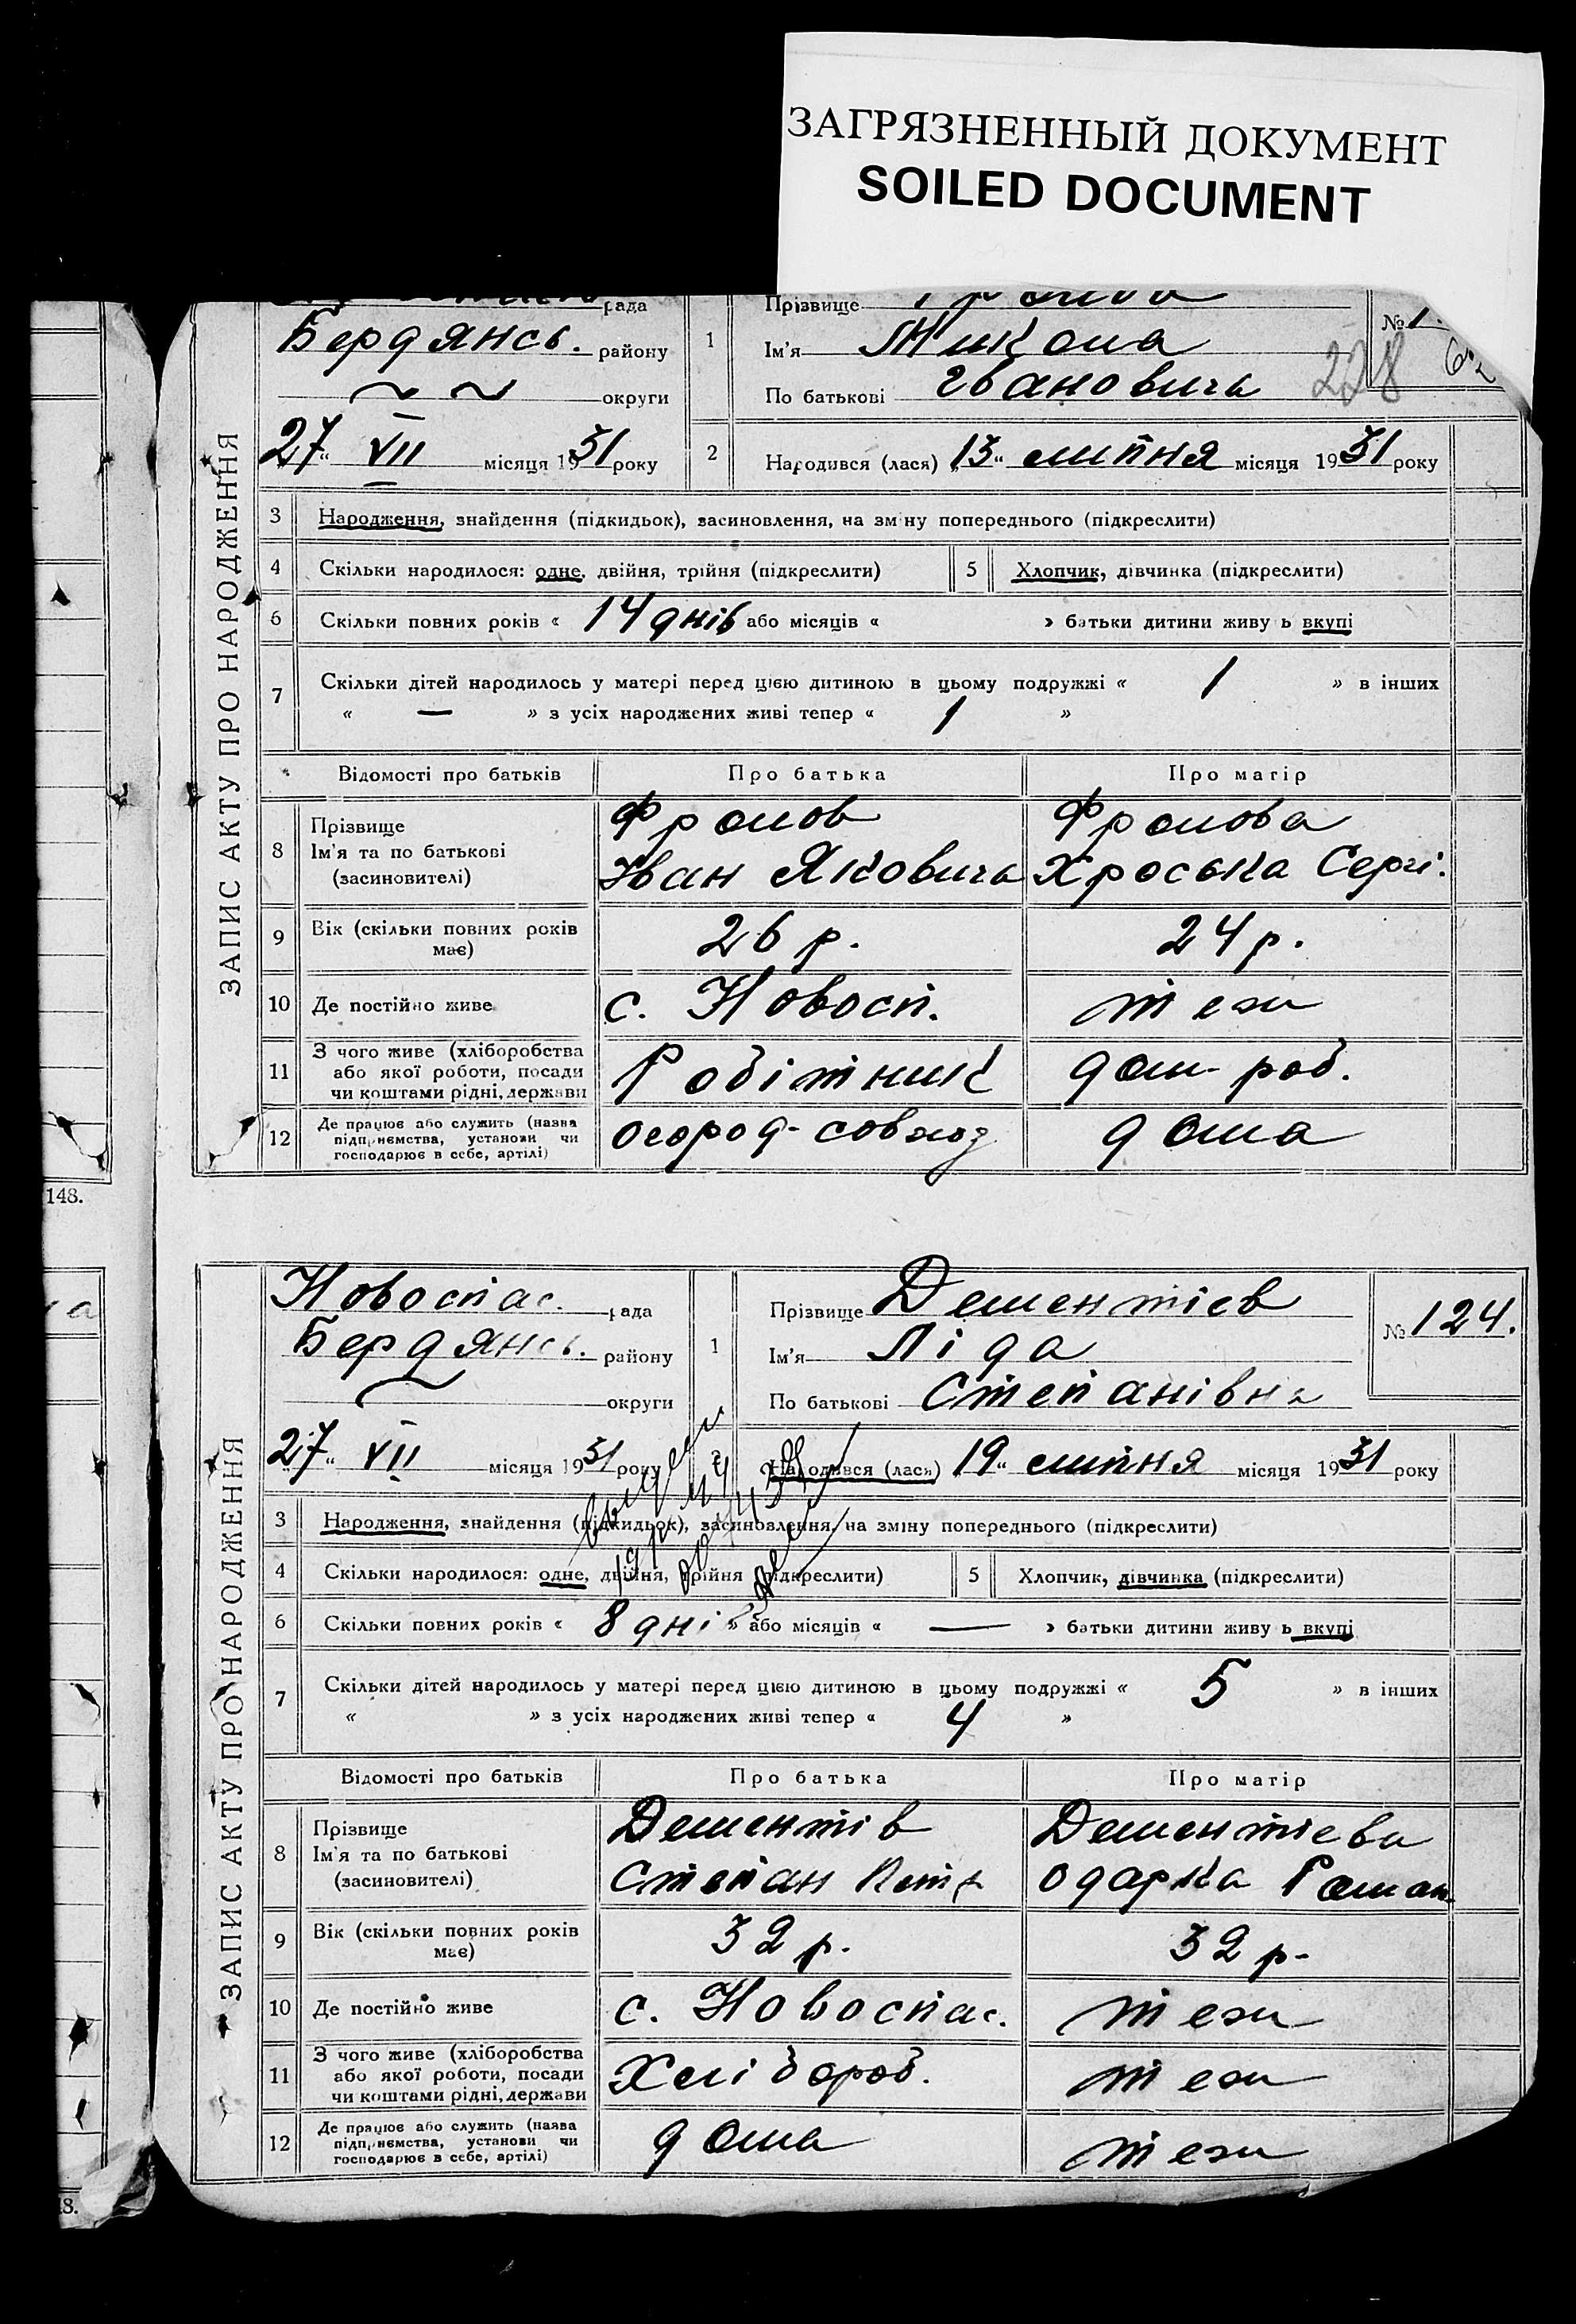 ЗАГРЯЗНЕННЫЙ ДОКУМЕНТ
SOILED DOCUMENT
ЗАПИС АКТУ ПРО НАРОДЖЕННЯ
рада
Бердянсь. району
округи
27 " VII місяця 1931 року
1
Прізвище
Ім'я Микола
По батькові Івановичь
№
228
2
Народився (лася) "13" липня місяця 1931 року
3 Народження, знайдення (підкидьок), засиновлення, на зм ну попереднього (підкреслити)
4 Скільки народилося: одне, двійня, трійня (підкреслити) 5 Хлопчик, дівчинка (підкреслити)
6 Скільки повних років « 14 днів або місяців « » батьки дитини живу ь вкупі
7 Скільки дітей народилось у матері перед цією дитиною в цьому подружжі « 1 » в інших
« — » з усіх народжених живі тепер « 1 »
Відомості про батьків Про батька Про матір
8 Прізвище Ім'я та по батькові (засиновителі)
Фролов Фролова
Іван Яковичь Хроська Сергі.
9 Вік (скільки повних років має) 26 р. 24 р.
10 Де постійно живе с. Новосп. теж
11 З чого живе (хліборобства або якої роботи, посади чи коштами рідні, держави Робітник дом. роб.
12 Де працює або служить (назва підприємства, установи чи господарює в себе, артілі) огород-совхоз дома
148.
ЗАПИС АКТУ ПРО НАРОДЖЕННЯ
Новоспас. рада
Бердянсь. району
округи
27 " VII місяця 1931 року
1
Прізвище Дементієв
Ім'я Ліда
По батькові Степанівна
№ 124.
2
Народився (лася) "19" липня місяця 1931 року
3 Народження, знайдення (підкидьок), засиновлення, на зміну попереднього (підкреслити)
4 Скільки народилося: одне, двійня, трійня (підкреслити) 5 Хлопчик, дівчинка (підкреслити)
6 Скільки повних років « 8 дні » або місяців « — » батьки дитини живу ь вкупі
7 Скільки дітей народилось у матері перед цією дитиною в цьому подружжі « 5 » в інших
« » з усіх народжених живі тепер « 4 »
Відомості про батьків Про батька Про матір
8 Прізвище Ім'я та по батькові (засиновителі)
Дементів Дементієва
Степан Петр Одарка Роман
9 Вік (скільки повних років має) 32 р. 32 р.
10 Де постійно живе с. Новоспас. теж
11 З чого живе (хліборобства або якої роботи, посади чи коштами рідні, держави Хлібороб. теж
12 Де працює або служить (назва підприємства, установи чи господарює в себе, артілі) дома теж